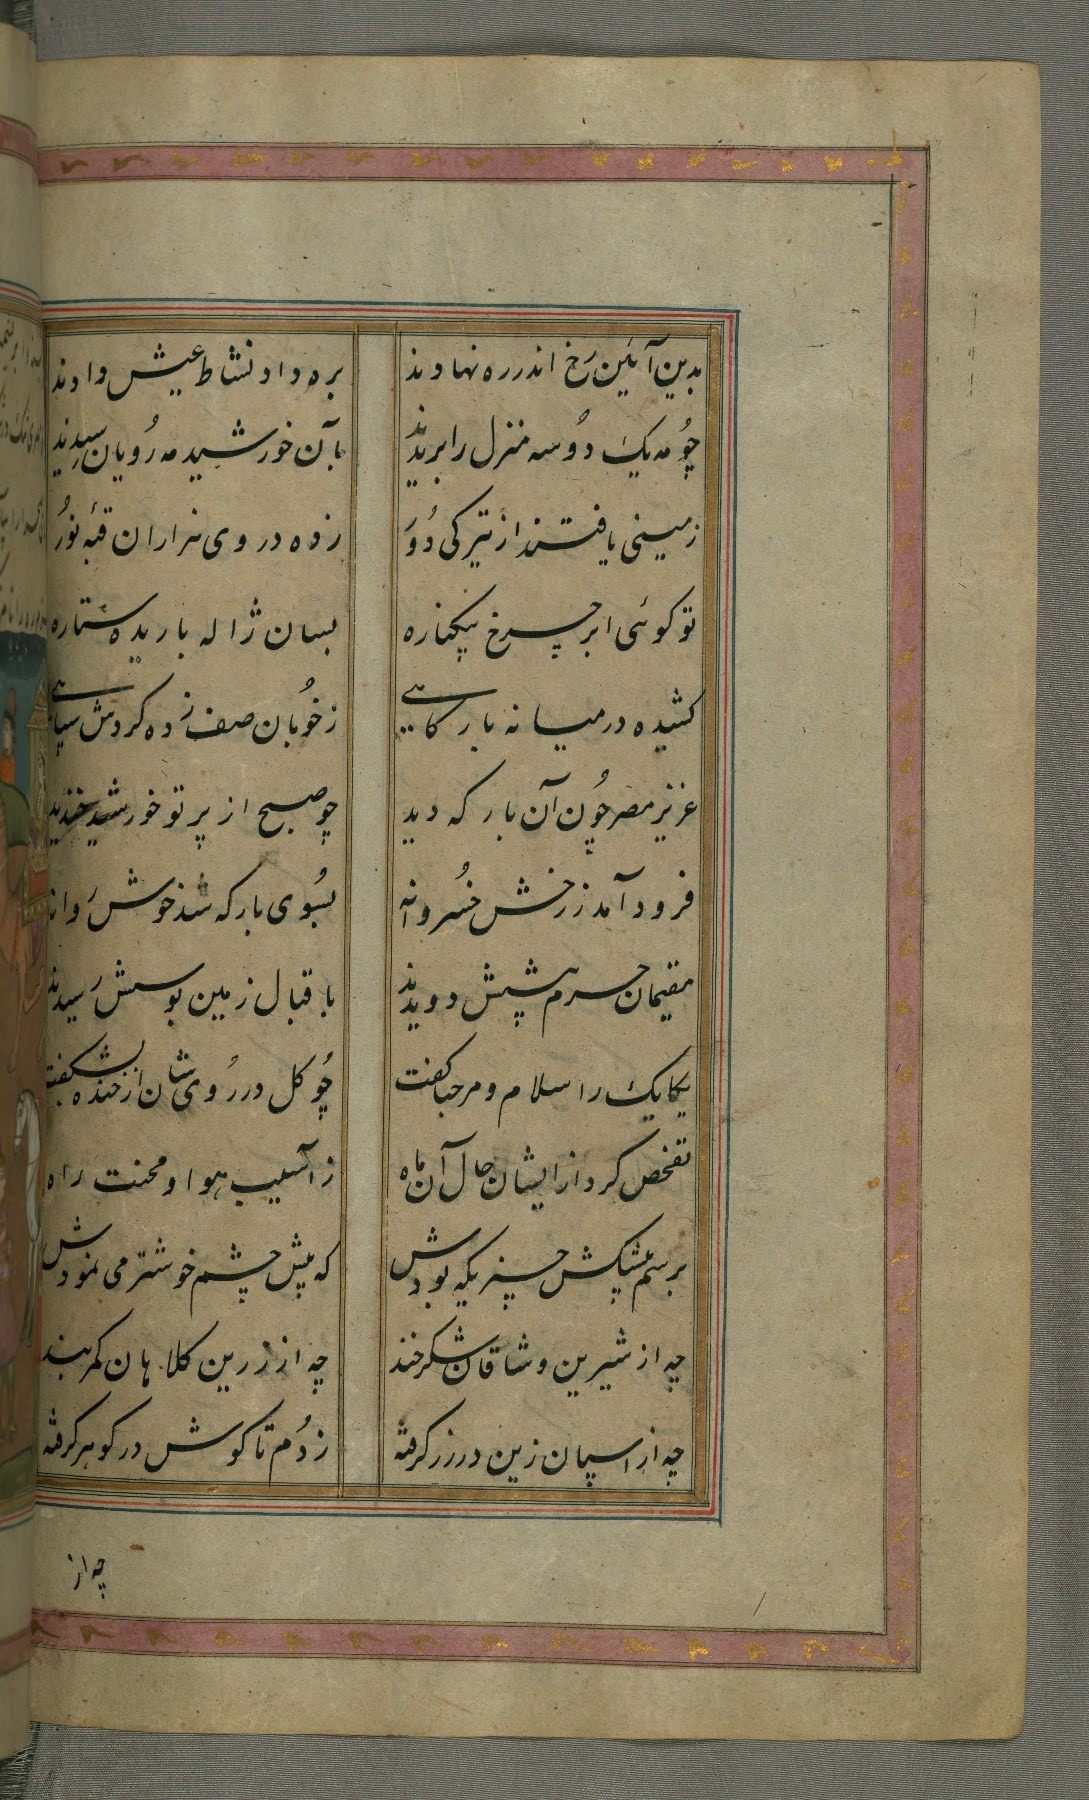 بدین آئین رخ اندر ره نهادند برِه داد نشاط عیش دادند
چو مه یک دو سه منزل را بریدند بآن خورشید مه رویان رسیدند
زمینی یافتند از تیرگی دور زده در وی هزاران قبهٔ نور
تو گوئی ابر چرخ بیکناره بسان ژاله باریده ستاره
کشیده در میانه بارگاهی ز خوبان صف زده گردش سپاهی
عزیز مصر چون آن بارگه دید چو صبح از پرتو خورشید خندید
فرود آمد ز رخش خسروانه بسوی بارگه شد خوش روانه
مقیمان حرم پیشش دویدند باقبال زمین بوسش رسیدند
یکایک را سلام و مرحبا گفت چو گل در روی شان از خنده بشکفت
تفحص کرد از ایشان حال آن ماه ز آسیب هوا و محنت راه
برسم پیشکش چیزیکه بودش که پیش چشم خوشتر می نمودش
چه از شیرین وشاقان شکرخند چه از زرین کلاهان کمربند
چه از اسپان زین در زر گرفته ز دم تا گوش در گوهر گرفته
چه از